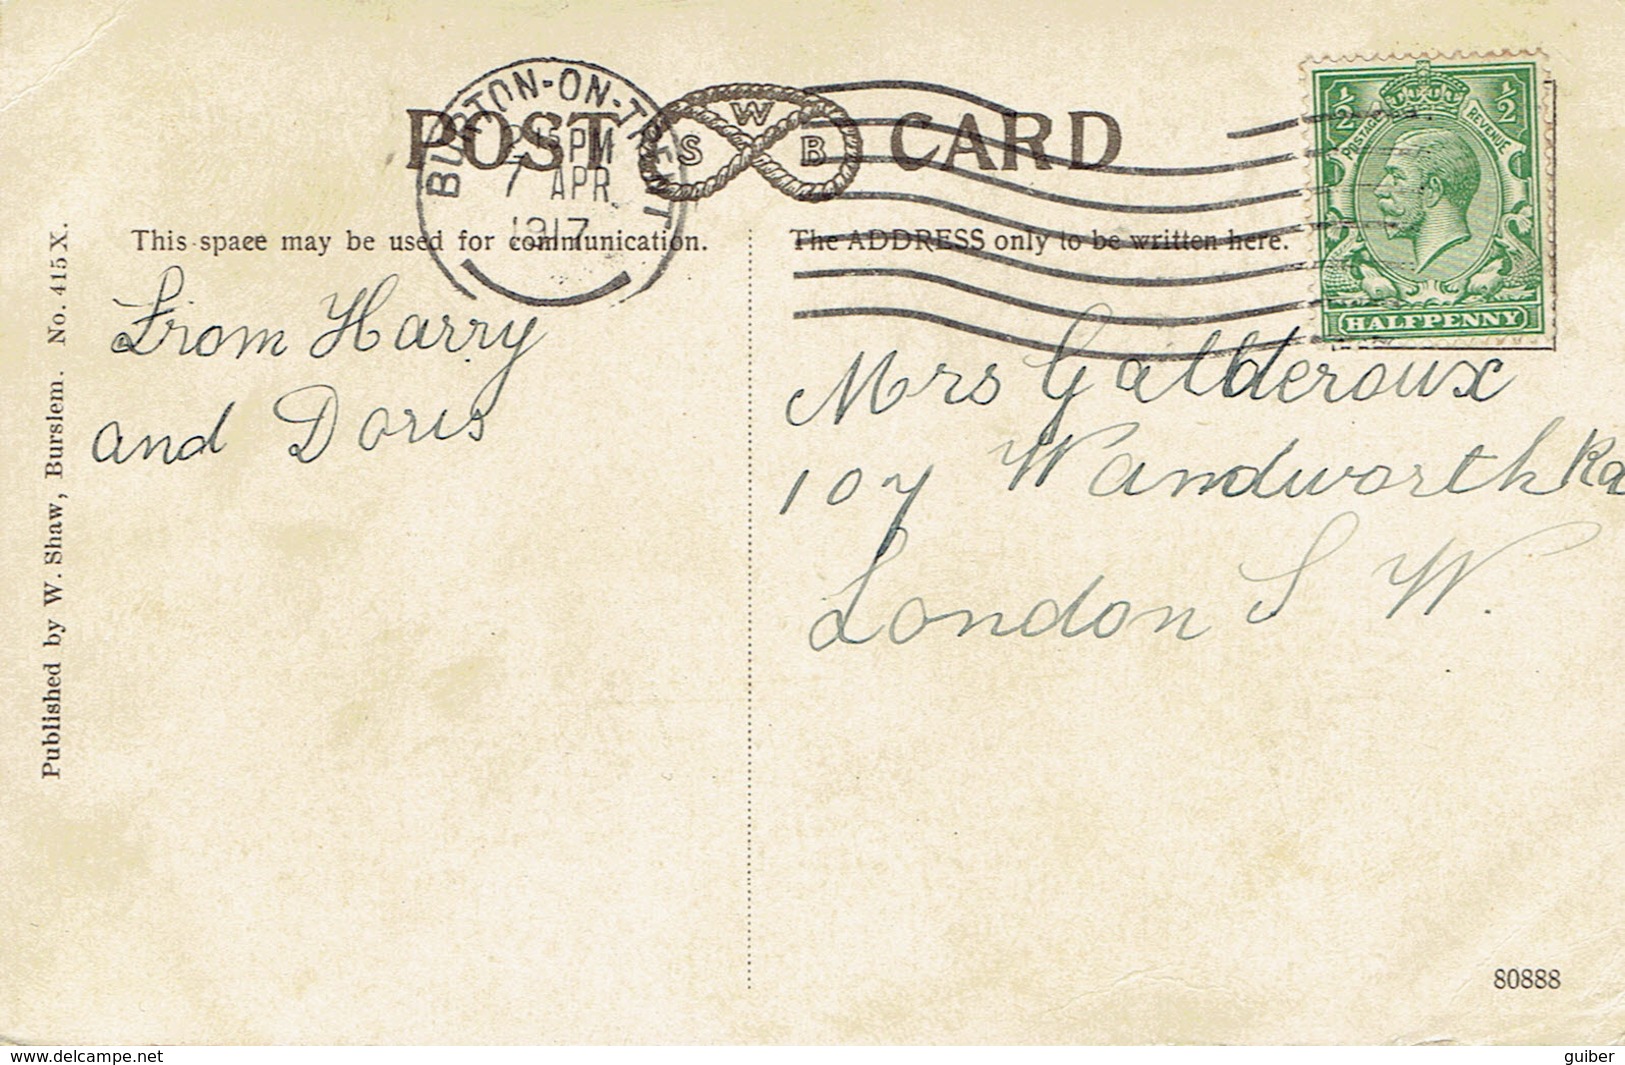 POST CARD
S W B
BURTON-ON-TRENT
15 PM
7 APR
1917
½ ½
POSTAGE REVENUE
HALFPENNY
This space may be used for communication.
The ADDRESS only to be written here.
From Harry
and Doris
Mrs Galderoux
107 Wandworth Rd
London S W.
Published by W. Shaw, Burslem. No. 415X.
80888
www.delcampe.net
guiber